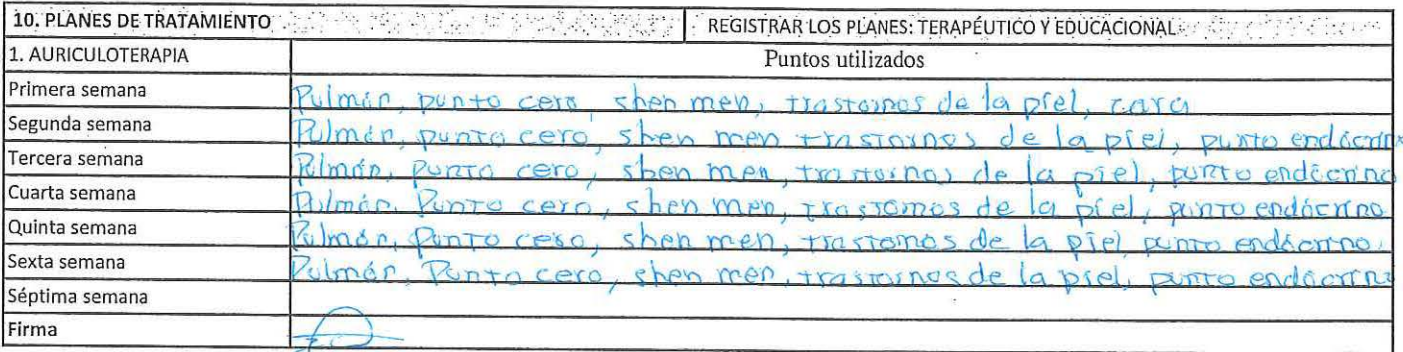 10. PLANES DE TRATAMIENTO REGISTRAR LOS PLANES: TERAPÉUTICO Y EDUCACIONAL
1. AURICULOTERAPIA Puntos utilizados
Primera semana Pulmón, punto cero shen men, trastornos de la piel, cara
Segunda semana Pulmón, punto cero, shen men trastornos de la piel, punto endócrino
Tercera semana Pulmón, punto cero, shen men, trastornos de la piel, punto endócrino
Cuarta semana Pulmón, Punto cero, shen men, trastornos de la piel, punto endócrino
Quinta semana Pulmón, Punto cero, shen men, trastornos de la piel punto endócrino.
Sexta semana Pulmón, Punto cero, shen men, trastornos de la piel, punto endócrino
Séptima semana
Firma